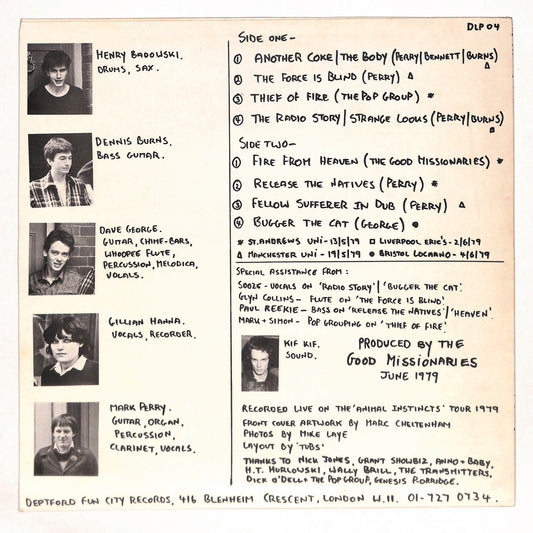 DLP 04
HENRY BADOWSKI.
DRUMS, SAX.
DENNIS BURNS.
BASS GUITAR.
DAVE GEORGE.
GUITAR, CHIME-BARS,
WHOOPEE FLUTE,
PERCUSSION, MELODICA,
VOCALS.
GILLIAN HANNA.
VOCALS, RECORDER.
MARK PERRY.
GUITAR, ORGAN,
PERCUSSION,
CLARINET, VOCALS.
SIDE ONE-
① ANOTHER COKE | THE BODY (PERRY|BENNETT|BURNS) △
② THE FORCE IS BLIND (PERRY) △
③ THIEF OF FIRE (THE POP GROUP) *
④ THE RADIO STORY | STRANGE LOOKS (PERRY|BURNS) □
SIDE TWO-
① FIRE FROM HEAVEN (THE GOOD MISSIONARIES) *
② RELEASE THE NATIVES (PERRY) *
③ FELLOW SUFFERER IN DUB (PERRY) △
④ BUGGER THE CAT (GEORGE) ●
* ST. ANDREWS UNI - 13/5/79 □ LIVERPOOL ERIC'S - 2/6/79
△ MANCHESTER UNI - 19/5/79 ● BRISTOL LOCARNO - 4/6/79
SPECIAL ASSISTANCE FROM:
SOOZE - VOCALS ON 'RADIO STORY' / 'BUGGER THE CAT'.
GLYN COLLINS - FLUTE ON 'THE FORCE IS BLIND'.
PAUL REEKIE - BASS ON 'RELEASE THE NATIVES' / 'HEAVEN'.
MARK + SIMON - POP GROUPING ON 'THIEF OF FIRE'.
KIF KIF.
SOUND.
PRODUCED BY THE
GOOD MISSIONARIES
JUNE 1979
RECORDED LIVE ON THE 'ANIMAL INSTINCTS' TOUR 1979
FRONT COVER ARTWORK BY MARC CHELTENHAM
PHOTOS BY MIKE LAYE
LAYOUT BY 'TUBS'
THANKS TO NICK JONES, GRANT SHOWBIZ, ANNO + BABY,
H.T. MURLOWSKI, WALLY BRILL, THE TRANSMITTERS,
DICK O'DELL + THE POP GROUP, GENESIS PORRIDGE.
DEPTFORD FUN CITY RECORDS, 416 BLENHEIM CRESCENT, LONDON W.11. 01-727 0734.